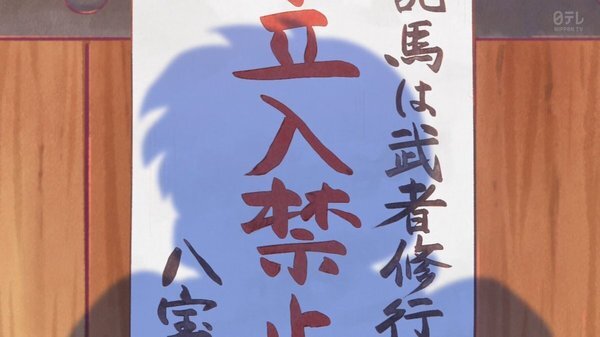 馬は武者修行
立入禁止
八宝
日テレ
NIPPON TV